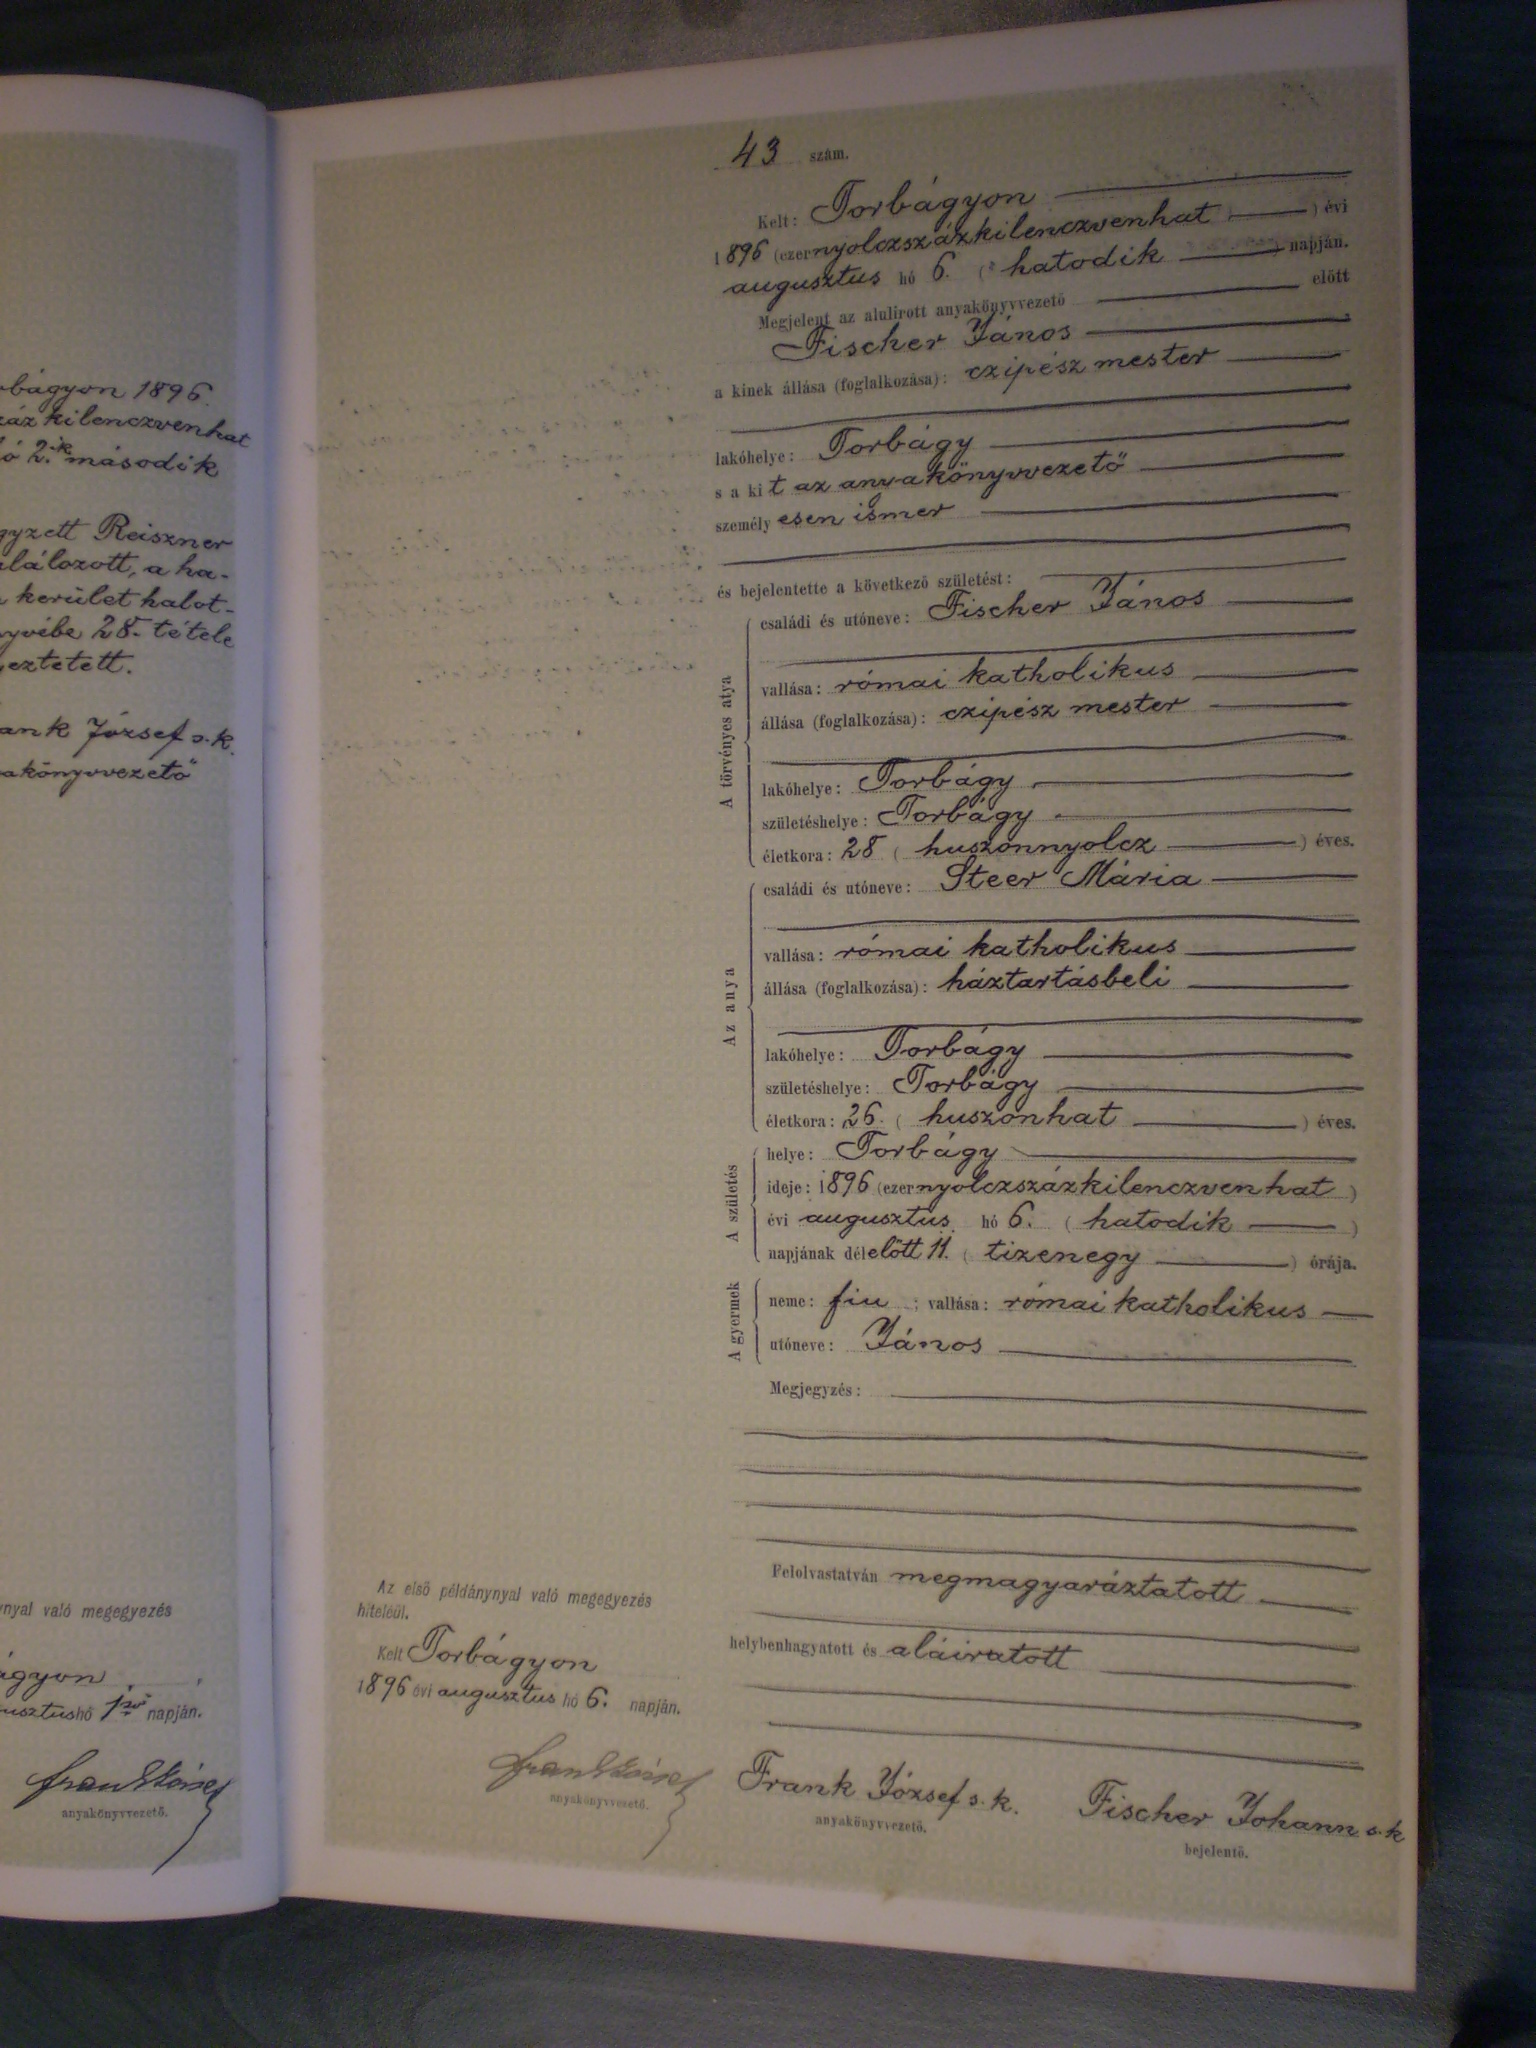 rbágyon 1896.
záz kilenczvenhat
ó 2.ik második
gyzett Reiszner
lálozott, a ha-
kerület halot-
yvébe 28. tétele
eztetett.
ank József s. k.
akönyvvezető
nynyal való megegyezés
ágyon,
usztus hó 1ső napján.
anyakönyvvezető.
43 szám.
Kelt: Torbágyon
1896 (ezernyolczszázkilenczvenhat) évi
augusztus hó 6. (hatodik) napján.
Megjelent az alulirott anyakönyvvezető előtt
Fischer János
a kinek állása (foglalkozása): czipész mester
lakóhelye: Torbágy
s a kit az anyakönyvvezető
személyesen ismer
és bejelentette a következő születést:
A törvényes atya
családi és utóneve: Fischer János
vallása: római katholikus
állása (foglalkozása): czipész mester
lakóhelye: Torbágy
születéshelye: Torbágy
életkora: 28 (huszonnyolcz) éves.
Az anya
családi és utóneve: Steer Mária
vallása: római katholikus
állása (foglalkozása): háztartásbeli
lakóhelye: Torbágy
születéshelye: Torbágy
életkora: 26. (huszonhat) éves.
A születés
helye: Torbágy
ideje: 1896 (ezernyolczszázkilenczvenhat)
évi augusztus hó 6. (hatodik)
napjának délelőtt 11. (tizenegy) órája.
A gyermek
neme: fiu; vallása: római katholikus
utóneve: János
Megjegyzés:
Felolvastatván megmagyaráztatott
helybenhagyatott és aláiratott
Az első példánynyal való megegyezés
hiteléül.
Kelt Torbágyon
1896 évi augusztus hó 6. napján.
Frank József
anyakönyvvezető.
Frank József s. k.
anyakönyvvezető.
Fischer Johann s. k
bejelentő.